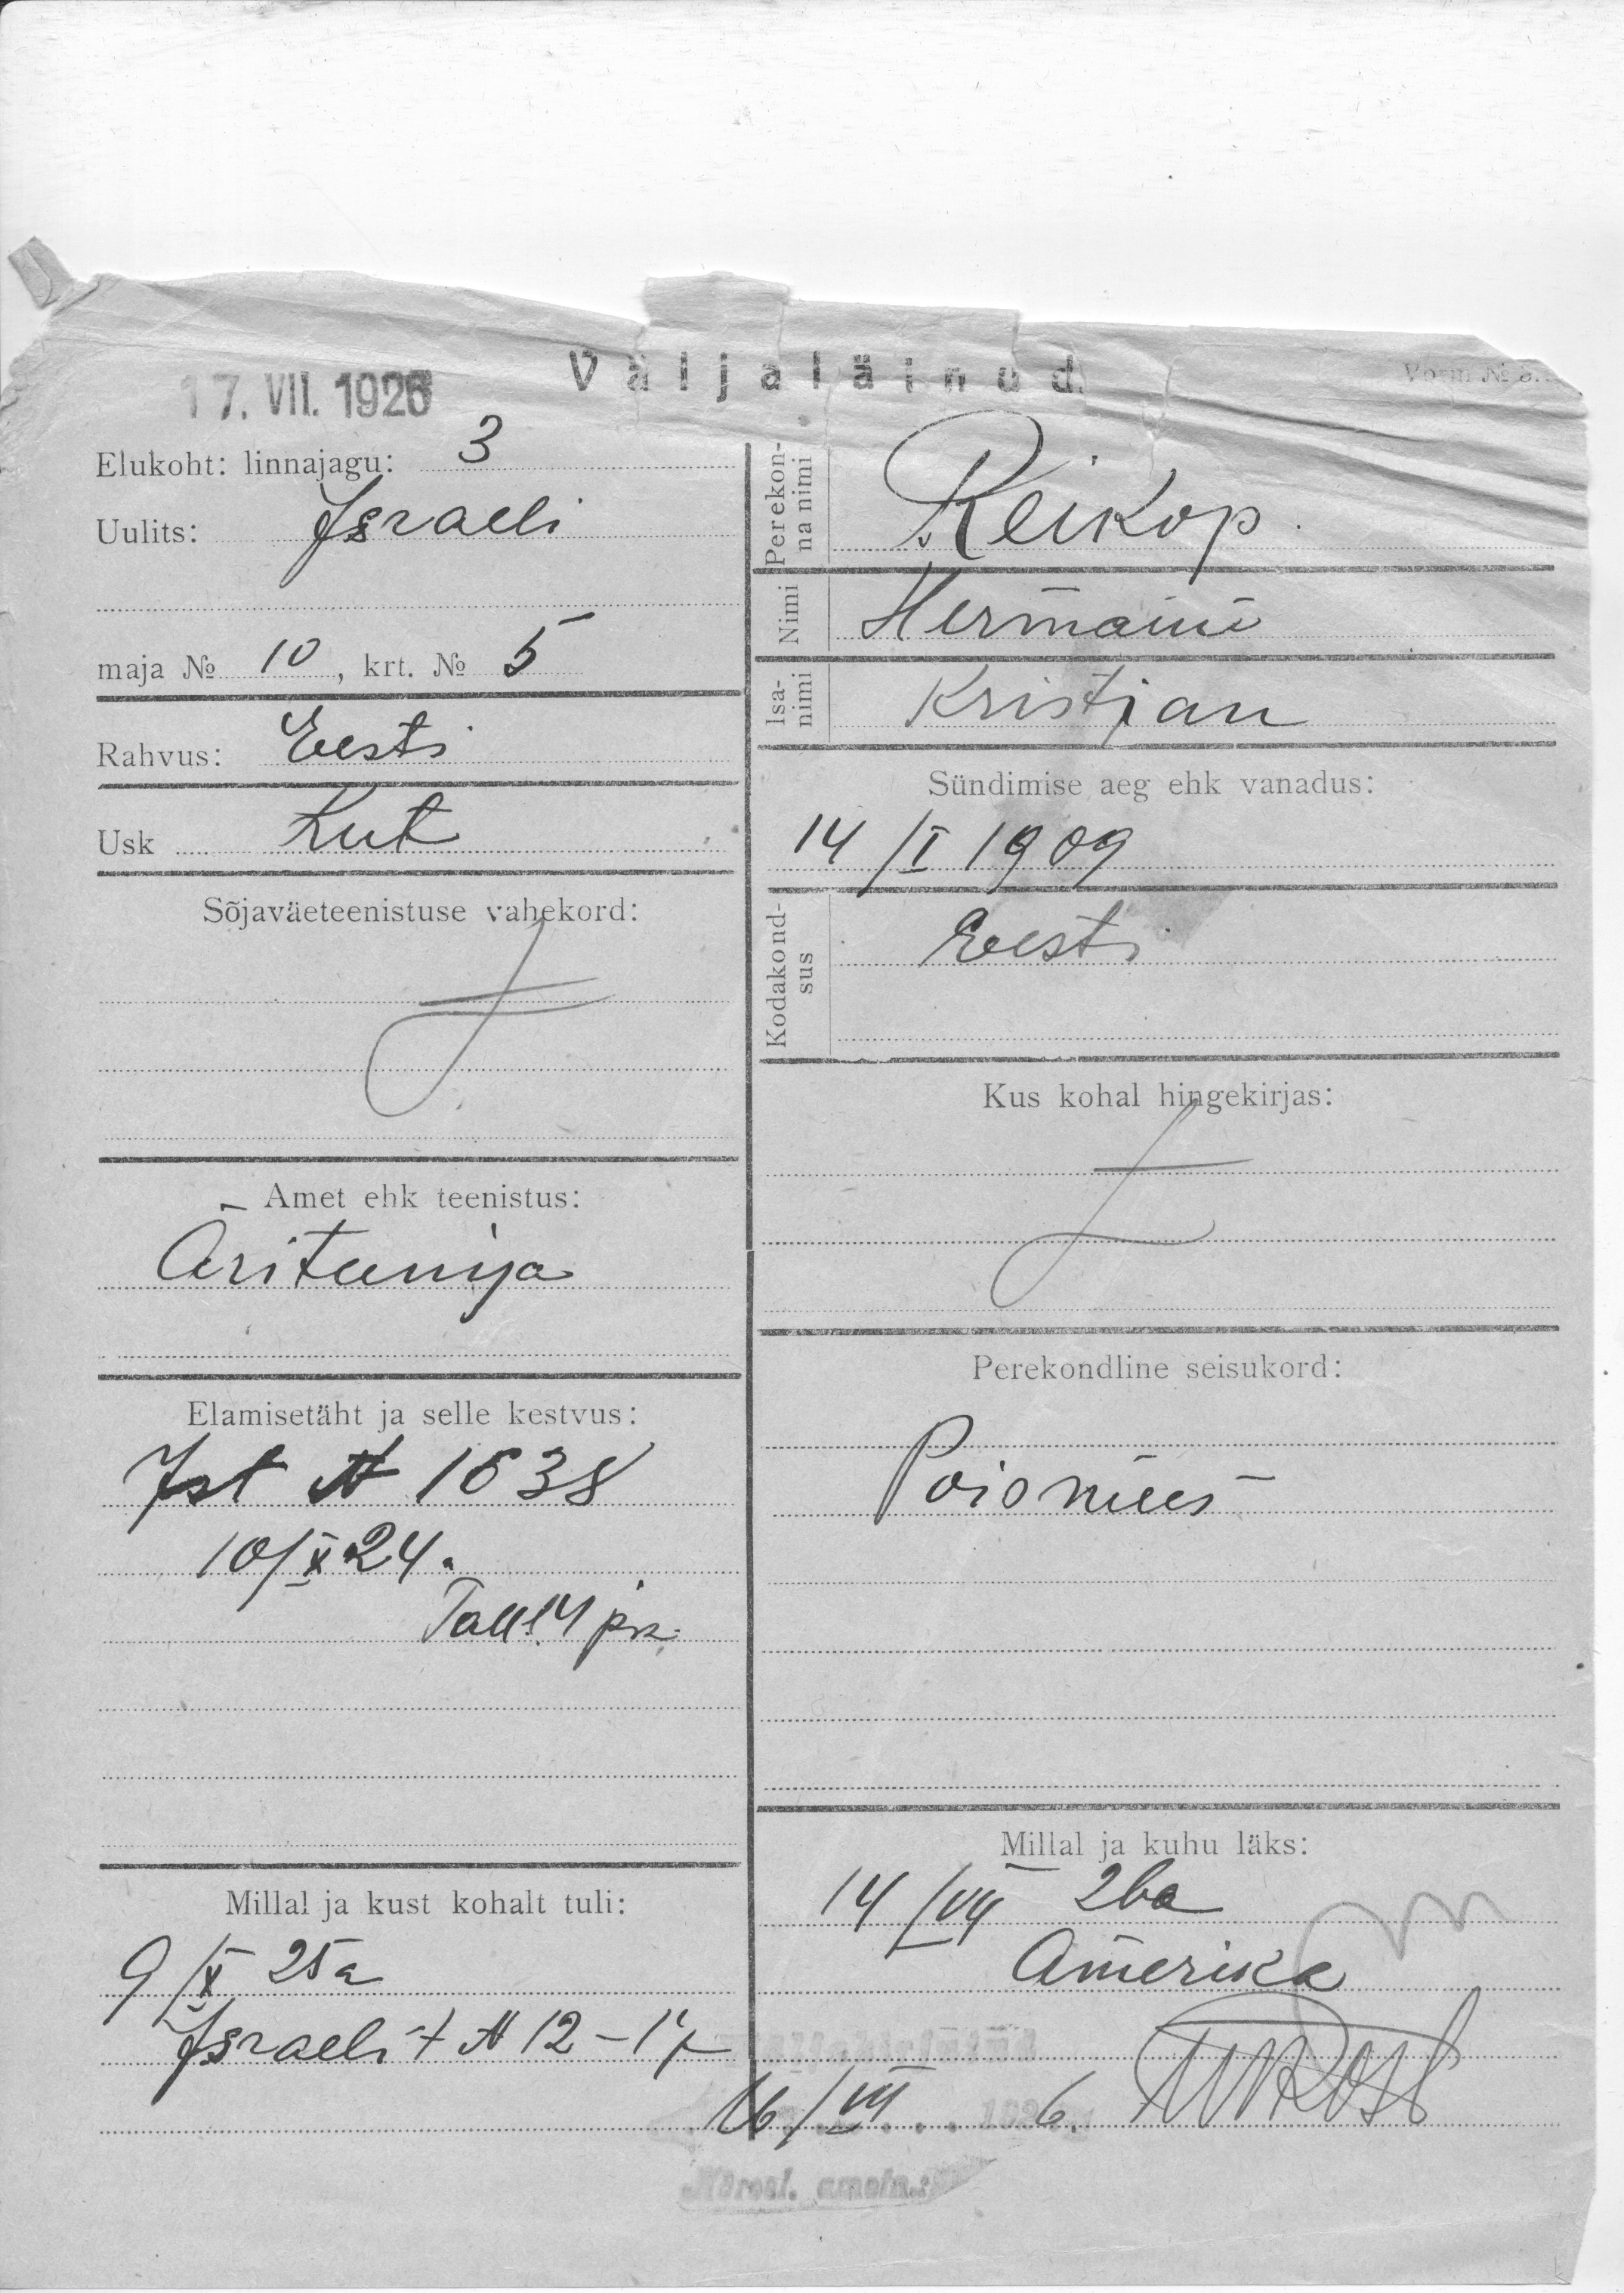 17. VII. 1926
Väljaläinud.
Vorm №
Elukoht: linnajagu: 3
Uulits: Israeli
maja № 10, krt. № 5
Rahvus: Eesti
Usk Lut
Sõjaväeteenistuse vahekord:
Amet ehk teenistus:
Äriteenija
Elamisetäht ja selle kestvus:
Ist № 1638
10/X 24.
Tall. 4 jsk.
Millal ja kust kohalt tuli:
9/X 25 a
Israeli t № 12-17
Perekonna nimi
Reikop.
Nimi Hermann
Isanimi Kristjan
Sündimise aeg ehk vanadus:
14/I 1909
Kodakondsus
Eesti
Kus kohal hingekirjas:
Perekondline seisukord:
Poismees
Millal ja kuhu läks:
14/VII 26 a
Amerika
16/VII 6.